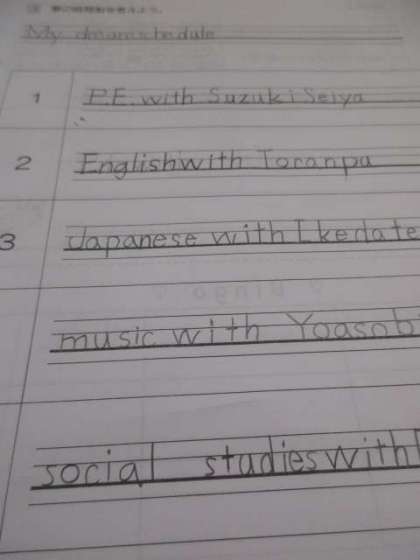 夢の時間割を考えよう。
My dream schedule
1 P.E. with Suzuki Seiya
2 English with Toranpu
3 Japanese with Ikedate
music with Yoasobi
social studies with